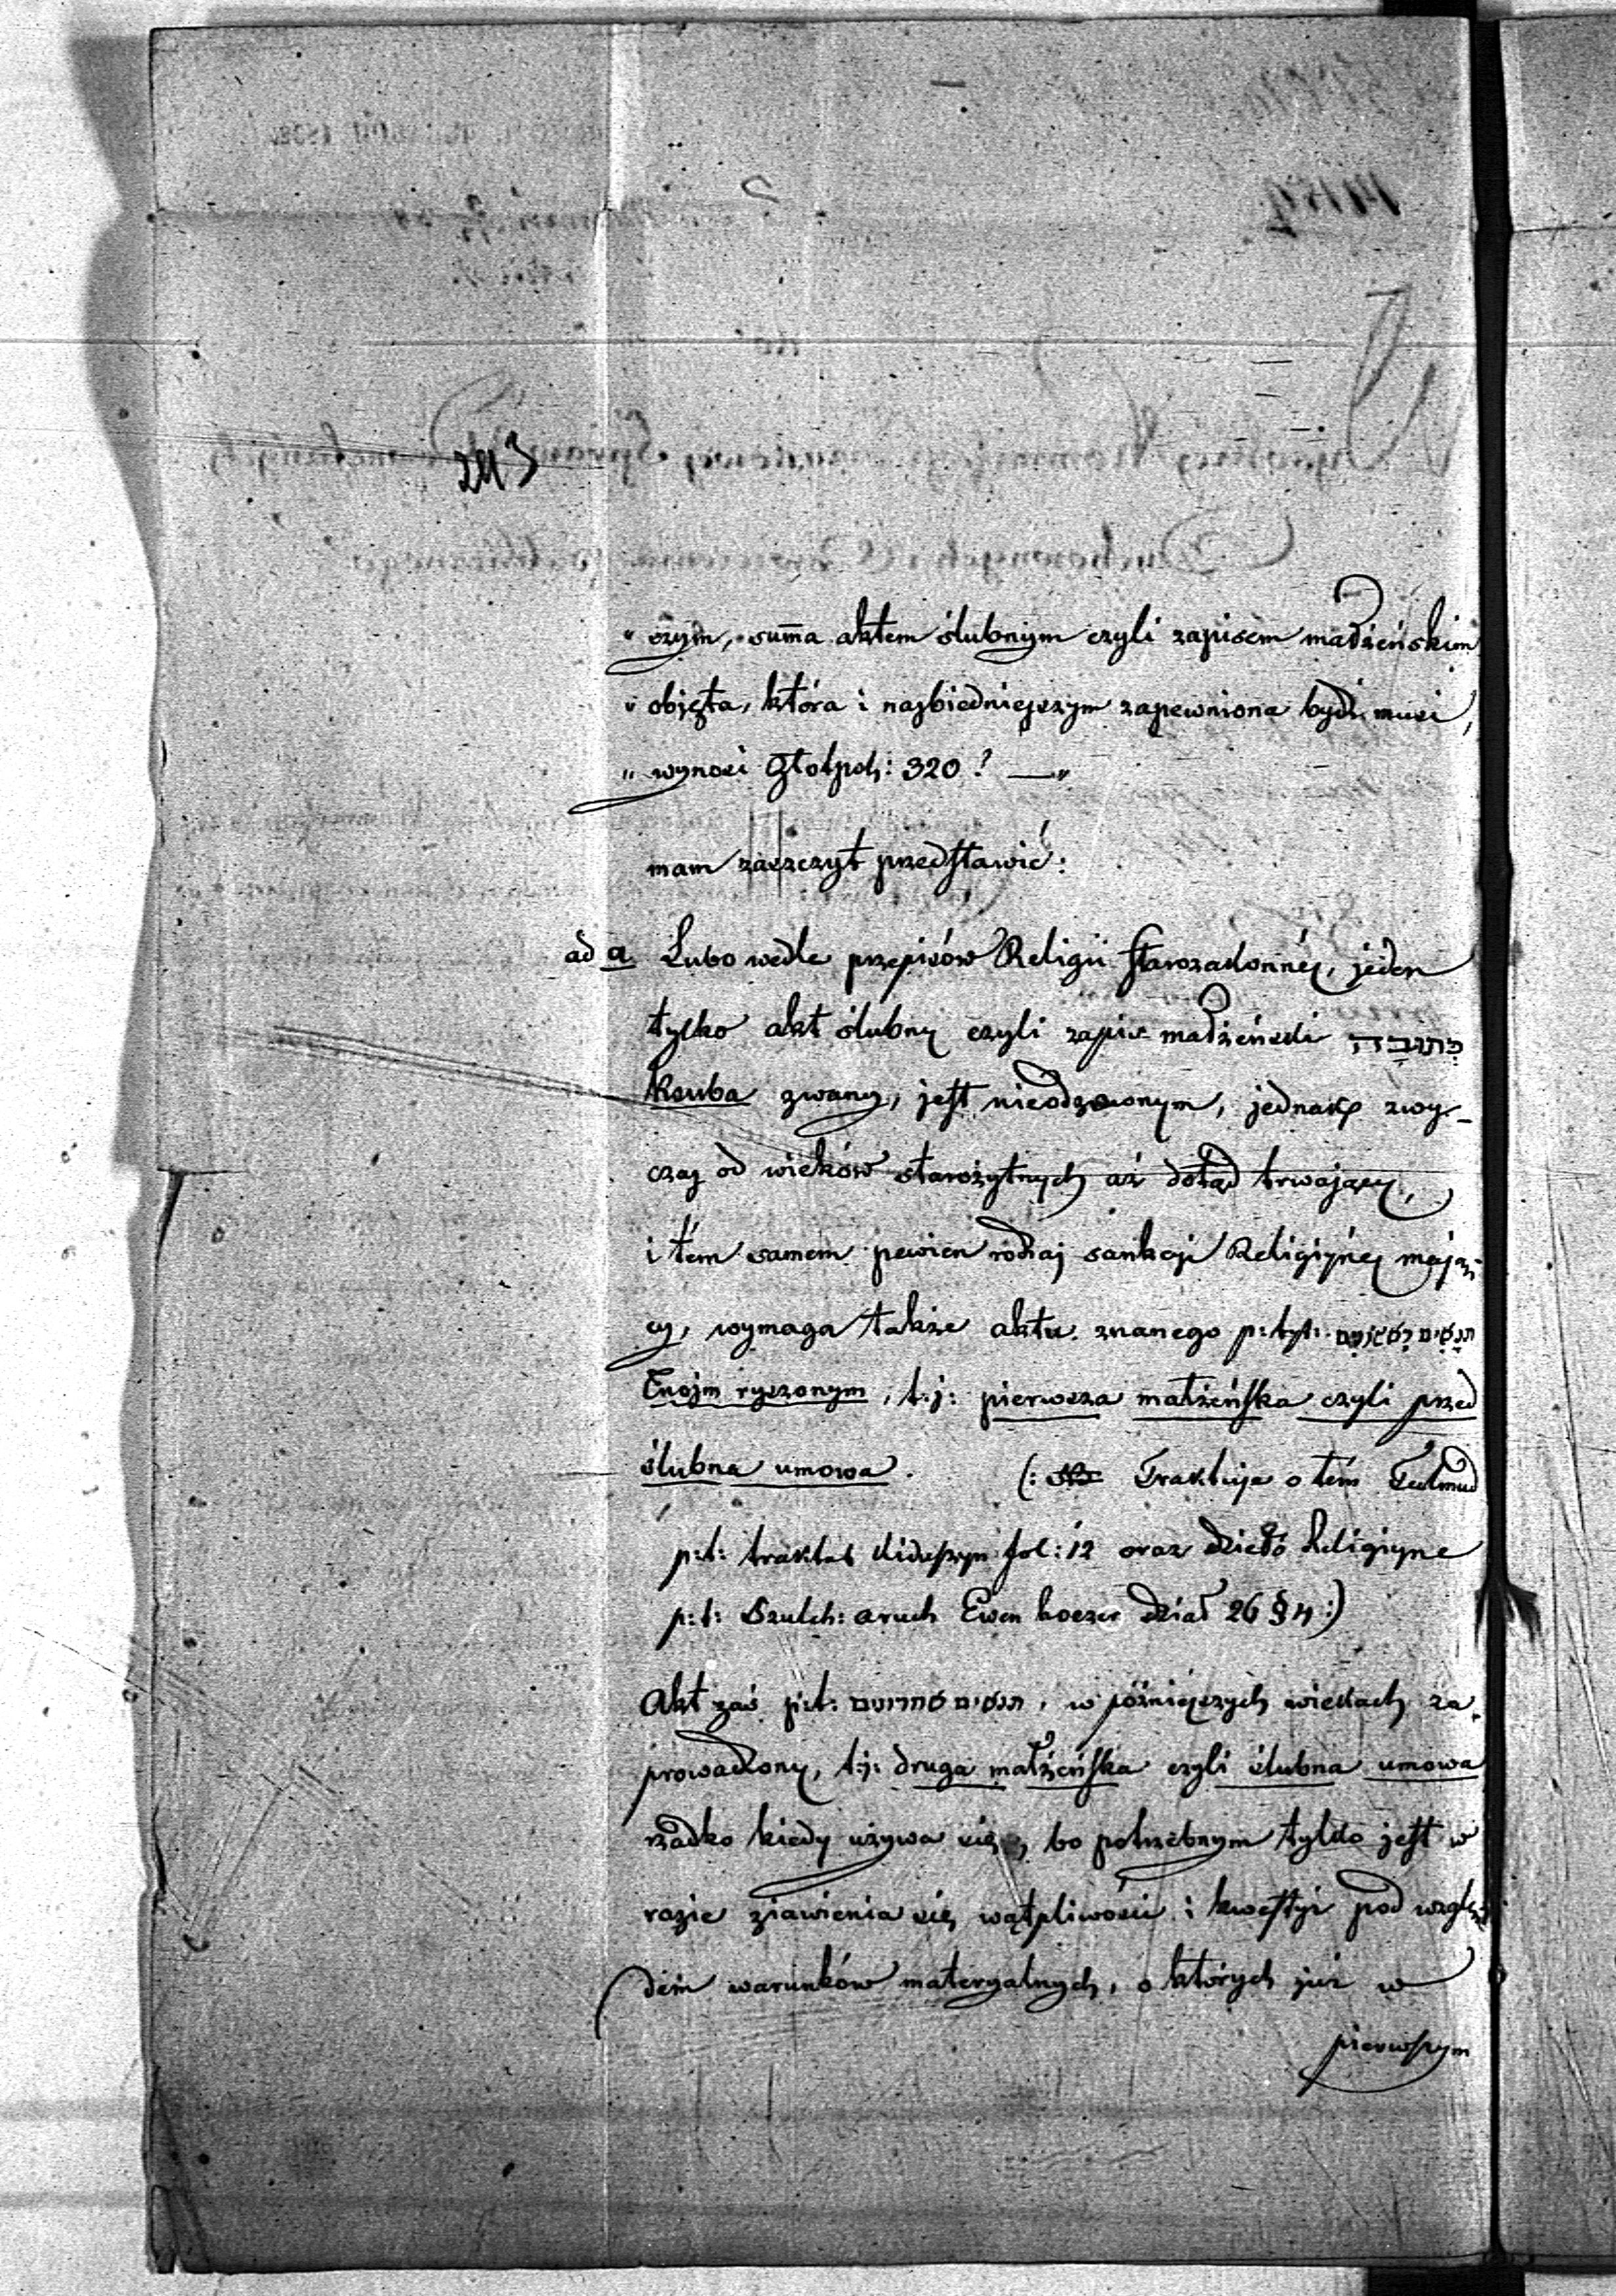 243
„ szym, suma aktem ślubnym czyli zapisem małżeńskim
„ objęta, która i najbiedniejszym zapewniona bydź musi,
„ wynosi Złotpol: 320? —"
mam zaszczyt przedstawić:
ad a. Lubo wedle przepisów Religii starozakonnéj, jeden
tylko akt ślubny czyli zapis małżeński כתובה
Ksuba zwany, jest nieodzownym, jednakże zwy-
czaj od wieków starożytnych aż dotąd trwający,
i tém samem pewien rodzaj sankcji Religijnéj mają-
cy, wymaga także aktu znanego p: tyt: תנאים ראשונים
Tnojm ryszonym, t:j: pierwsza małżeńska czyli przed
ślubna umowa. (: Traktuje o tém Talmud
p:t: traktat Kiduszyn fol: 12 oraz dzieło Religijne
p:t: Szulch: aruch Ewen hoezer dział 26 § 4 :)
Akt zaś p:t: תנאים אחרונים, w późniejszych wiekach za-
prowadzony, t:j: druga małżeńska czyli ślubna umowa
rzadko kiedy używa się, bo potrzebnym tylko jest w
razie zjawienia się wątpliwości i kwestyi pod wzglę-
dém warunków materyalnych, o których już w
pierwszym